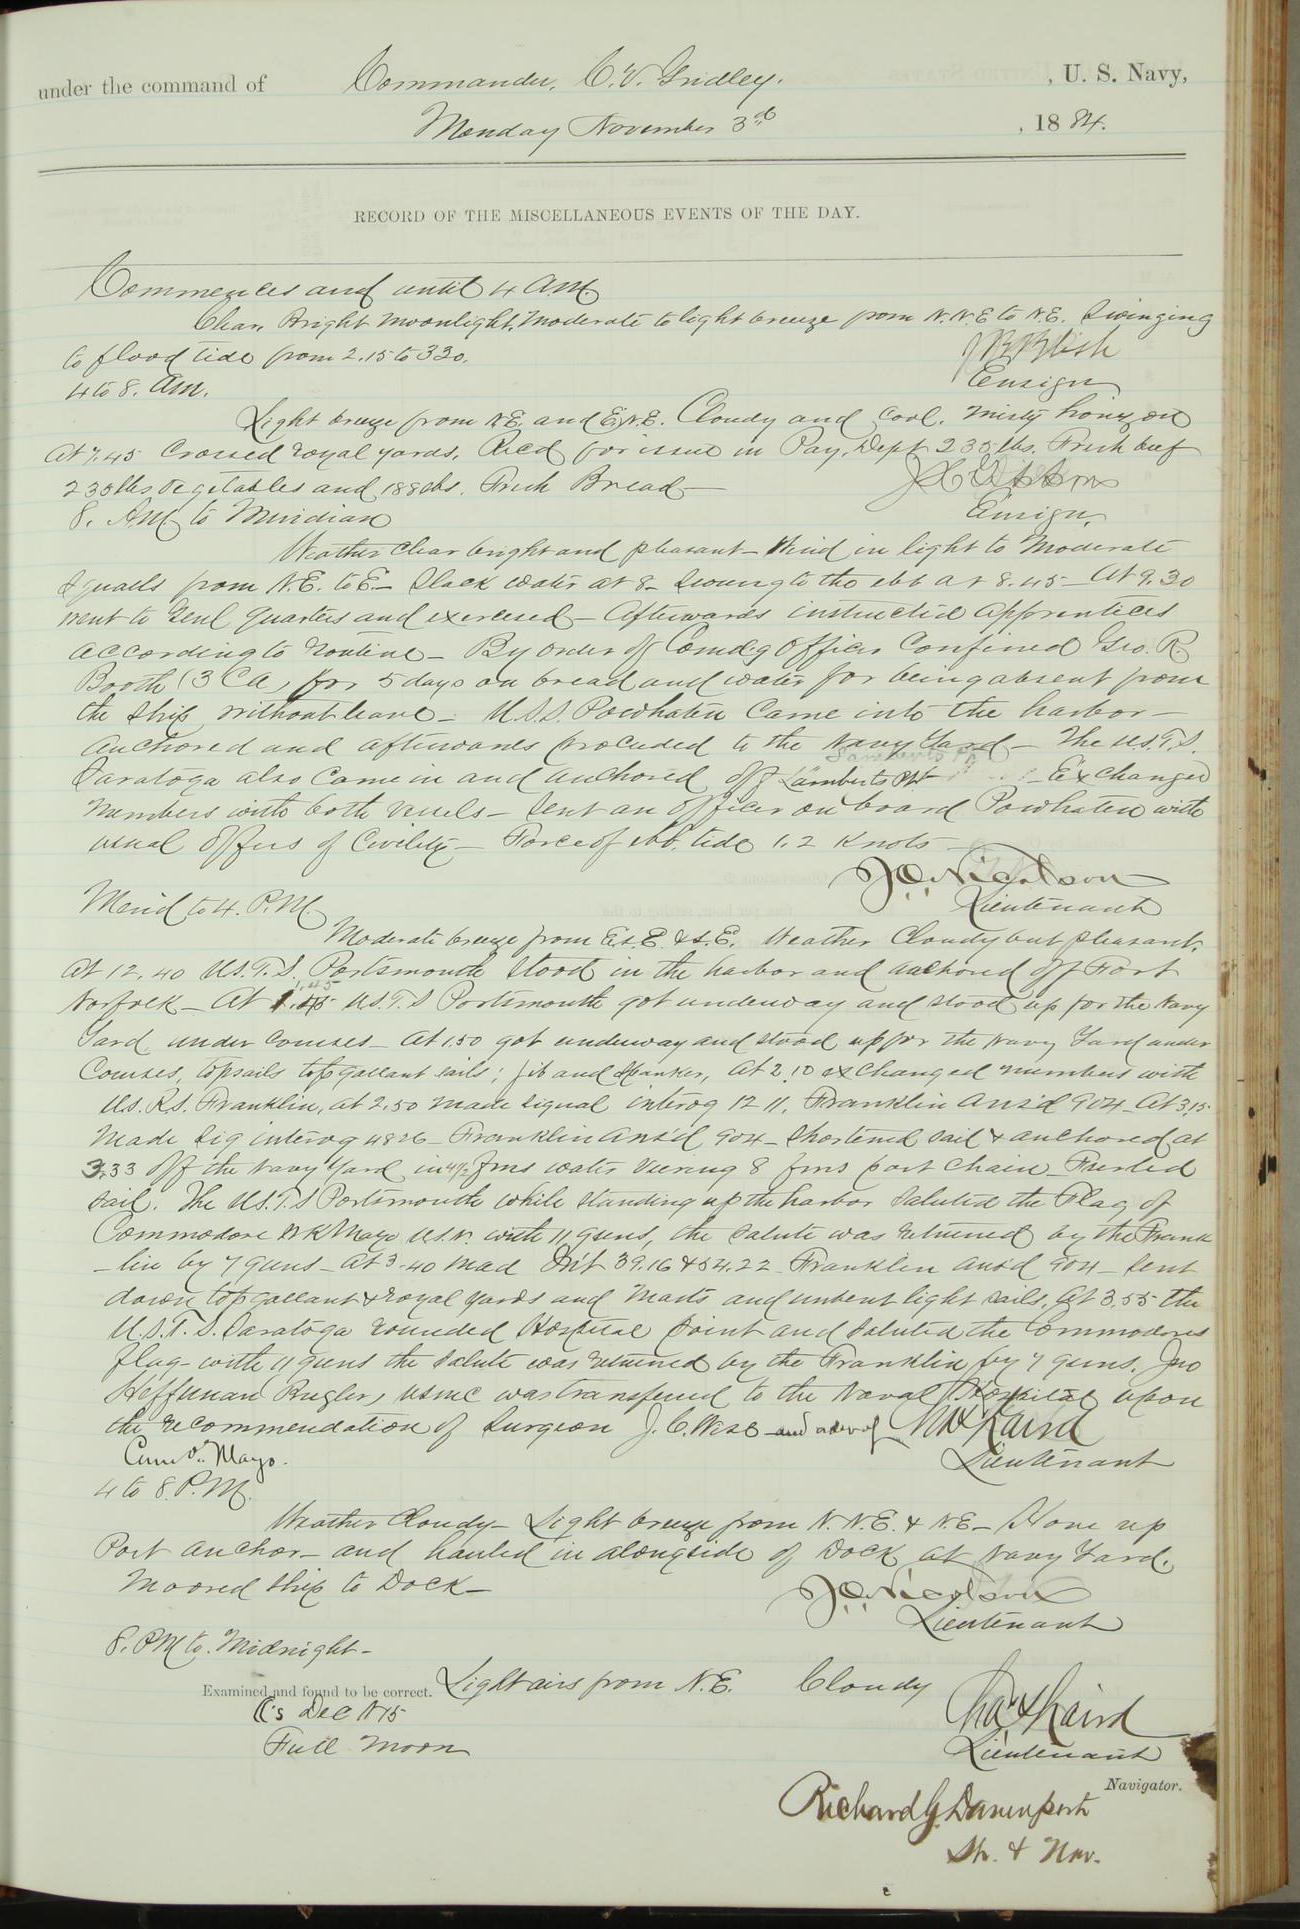 under the command of Commander, C. V. Gridley. , U. S. Navy,
Monday November 3rd , 1884.
RECORD OF THE MISCELLANEOUS EVENTS OF THE DAY.
Commences and until 4 A.M.
Clear. Bright Moonlight. Moderate to light breeze from N.N.E to N.E. Swinging
to flood tide from 2.15 to 330.
Ensign
4 to 8. Am.
Light breeze from N.E. and E.N.E. Cloudy and Cool. Misty horizon
At 7.45 Crossed royal yards. Recd for issue in Pay. Dept 235 lbs. Fresh beef
235 lbs vegetables and 188 lbs. Fresh Bread —
8. AM to Meridian
Ensign.
Weather clear bright and pleasant — Wind in light to Moderate
Squalls from N.E. to E — Slack water at 8 — Swung to the ebb at 8.45 — At 9.30
went to Genl Quarters and exercised — Afterwards instructed apprentices
according to routine — By order of Comd'g Officer Confined Geo. R.
Booth (3 Ca) for 5 days on bread and water for being absent from
the Ship without leave — U.S.S. Powhatan Came into the harbor —
Anchored and afterwards proceeded to the Navy Yard — The U.S.T.S.
Saratoga also Came in and anchored off Lamberts Pt — Exchanged
Numbers with both vessels — Sent an officer on board Powhatan with
usual offers of Civility — Force of ebb tide 1.2 Knots —
J.O. Nicolson
Lieutenant
Merid to 4. P.M.
Moderate breeze from E.S.E. & S.E. Weather Cloudy but pleasant.
At 12.40 U.S.T.S. Portsmouth Stood in the harbor and anchored off Fort
Norfolk — At 1.45 U.S.T.S Portsmouth got underway and stood up for the Navy
Yard under Courses — At 1.50 got underway and stood up for the Navy Yard under
Courses, topsails topgallant sails; jib and spanker, at 2.10 exchanged numbers with
U.S.R.S. Franklin, at 2.50 made signal interog 1211. Franklin Ans'd 904 — At 3.15
Made Sig interog 4826 — Franklin Ans'd 904 — Shortened sail & anchored at
3.33 off the Navy Yard in 4½ fms water veering 8 fms port chain — Furled
sail. The U.S.T.S Portsmouth while standing up the harbor Saluted the Flag of
Commodore W K Mayo U.S.N. with 11 guns, the salute was returned by the Frank
-lin by 7 guns — At 3.40 Mad Int 39.16 & 54.22 Franklin ans'd 904 — Sent
down topgallant & royal yards and Masts and unbent light sails. At 3.55 the
U.S.T.S. Saratoga rounded Hospital Point and saluted the Commodores
flag — with 11 guns the salute was returned by the Franklin by 7 guns. Jno
Heffernan Bugler, USMC was transferred to the Naval Hospital upon
the recommendation of Surgeon J. C. Wise and order of Chas F Laird
Comdr. Mayo.
Lieutenant
4 to 8. P.M.
Weather Cloudy — Light breeze from N.N.E. & N.E — Hove up
Port anchor — and hauled in alongside of Dock at Navy Yard.
Moored ship to Dock —
J.O. Nicolson
Lieutenant
8. PM to. Midnight —
Light airs from N.E. Cloudy
Examined and found to be correct.
Full Moon
Lieutenant
Navigator.
Richard G. Davenport